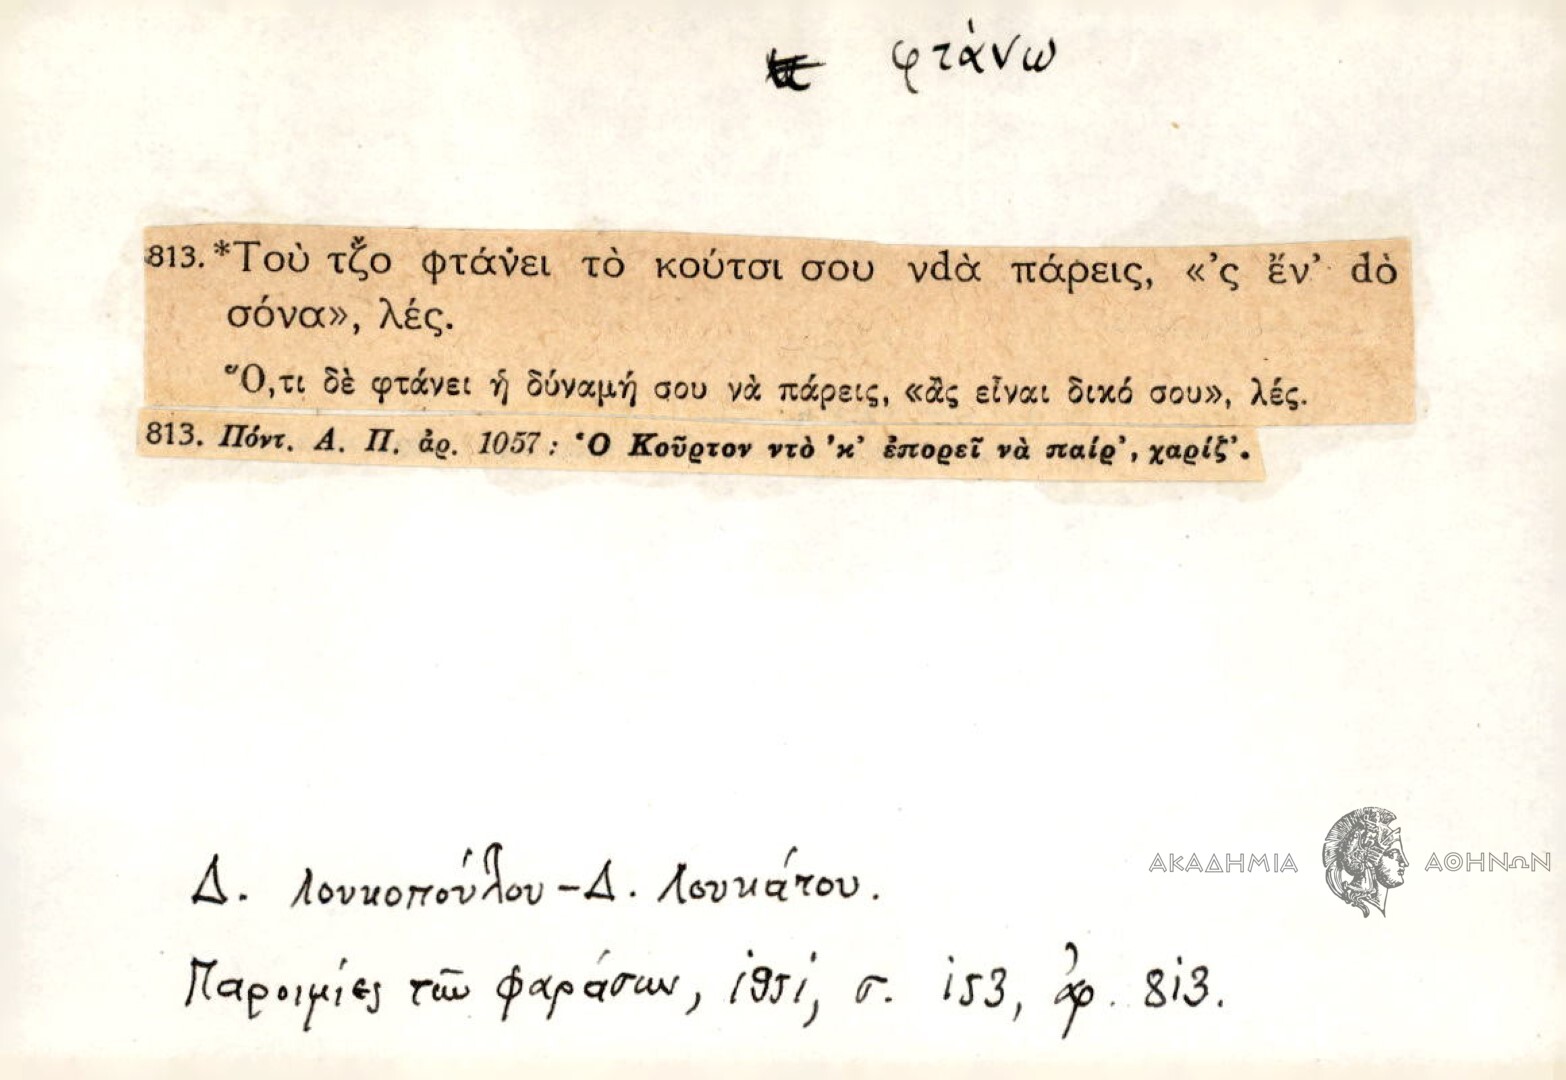 φτάνω
813. *Τοὺ τζ̌ο φτάνει τὸ κούτσι σου νdὰ πάρεις, «'ς ἔν' dὸ
σόνα», λές.
Ὅ,τι δὲ φτάνει ἡ δύναμή σου νὰ πάρεις, «ἂς εἶναι δικό σου», λές.
813. Πόντ. Α. Π. ἀρ. 1057: Ὁ Κοῦρτον ντὸ 'κ' ἐπορεῖ νὰ παίρ', χαρίζ'.
ΑΚΑΔΗΜΙΑ ΑΘΗΝΩΝ
Δ. Λουκοπούλου – Δ. Λουκάτου.
Παροιμίες τῶν Φαράσων, 1951, σ. 153, ἀρ. 813.